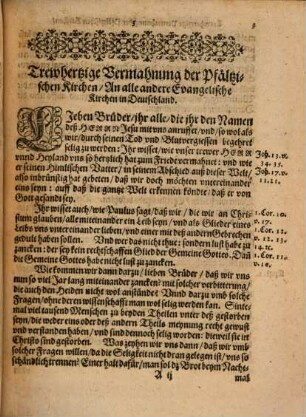 3
Trewhertzige Vermahnung der Pfältzi-
schen Kirchen / An alle andere Evangelische
Kirchen in Deutschland.
LJeben Brüder / jhr alle / die jhr den Namen
deß HERRN Jesu mit vns anruffet / vnd / so wol als
wir / durch seinen Tod vnd Blutvergiessen begehret
selig zu werden: Jhr wisset / wie vnser trewer HERR
vnnd Heyland vns so hertzlich hat zum Friede vermahnet: vnd wie
er seinen Himlischen Vatter / in seinem Abschied auß dieser Welt /
also inbrünstig hat gebeten / daß wir doch möchten vntereinander
eins seyn: auff daß die gantze Welt erkennen köndte / daß er von
Gott gesandt sey.
Joh. 13. v.
34. 35.
Joh. 17. v.
11. 21.
Jhr wisset auch / wie Paulus sagt / daß wir / die wir an Chri-
stum glauben / alle miteinander ein Leib seyn / vnd als Glieder eines
Leibs vns vntereinander lieben / vnd einer mit deß andern Gebrechen
gedult haben sollen. Vnd wer das nicht thue: sondern lust habe zu
zancken: der sey kein rechtschaffen Glied der Gemeine Gottes. Dañ
die Gemeine Gottes hab nicht lust zu zancken.
1. Cor. 10.
v. 17.
1. Cor. 12.
1. Cor. 11.
v. 16.
Wie kommen wir dann darzu / lieben Brüder / daß wir vns
nun so viel Jar lang mit einander zancken: mit solcher verbitterung /
die auch bey Heiden nicht wol anstünde? Vnnd darzu vmb solche
Fragen / ohne deren wissenschafft man wol selig werden kan. Sinte-
mal viel tausend Menschen zu beyden Theilen vnter deß gestorben
seyn / die weder eins oder deß andern Theils meynung recht gewust
vnd verstanden haben / vnd sind dennoch selig worden: dieweil sie in
Christo sind gestorben. Was zeyhen wir vns dann / daß wir vmb
solcher Fragen willen / da die Seligkeit nicht dran gelegen ist / vns so
schändlich trennen? Einer halt dafür / man sol dz Brot beym Nacht-
A ij
mal